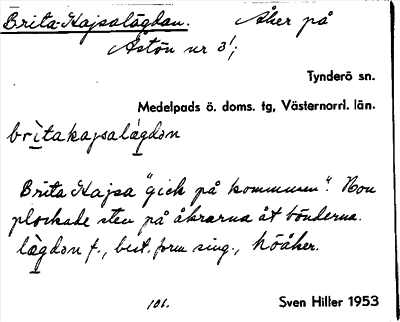 Brita-Kajsalägdan. Åker på
Åstön nr 3¹;
Tynderö sn.
Medelpads ö. doms. tg, Västernorrl. län.
brìtakajsalä̀gdən
Brita Kajsa "gick på kommunen". Hon
plockade sten på åkrarna åt bönderna.
lä̀gdən f., best. form sing., höåker.
101.
Sven Hiller 1953